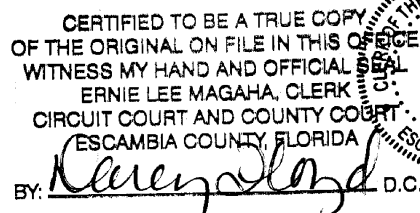 CERTIFIED TO BE A TRUE COPY
OF THE ORIGINAL ON FILE IN THIS OFFICE
WITNESS MY HAND AND OFFICIAL SEAL
ERNIE LEE MAGAHA, CLERK
CIRCUIT COURT AND COUNTY COURT
ESCAMBIA COUNTY, FLORIDA
BY: D.C.
CLERK OF THE
ESC